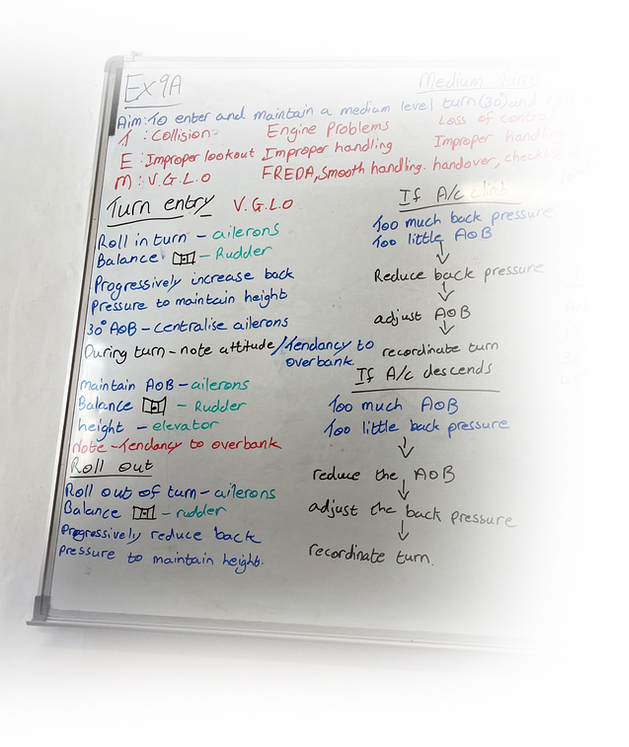 Ex 9A
Medium Turns
Aim: To enter and maintain a medium level turn (30°) and
T : Collision Engine Problems Loss of
E : Improper lookout Improper handling Improper handling
M : V.G.L.O FREDA, Smooth handling. handover,
Turn entry V.G.L.O
Roll in turn – ailerons
Balance – Rudder
Progressively increase back
Pressure to maintain height
30° AoB – Centralise ailerons
During turn – note attitude / Tendancy to
overbank.
maintain AoB – ailerons
Balance – Rudder
height – elevator
Note – Tendancy to overbank
Roll out
Roll out of turn – ailerons
Balance – rudder
Progressively reduce back
pressure to maintain height.
If A/c climb
Too much back pressure
Too little AoB
Reduce back pressure
adjust AoB
recordinate turn
If A/c descends
Too much AoB
Too little back pressure
reduce the AoB
adjust the back pressure
recordinate turn.